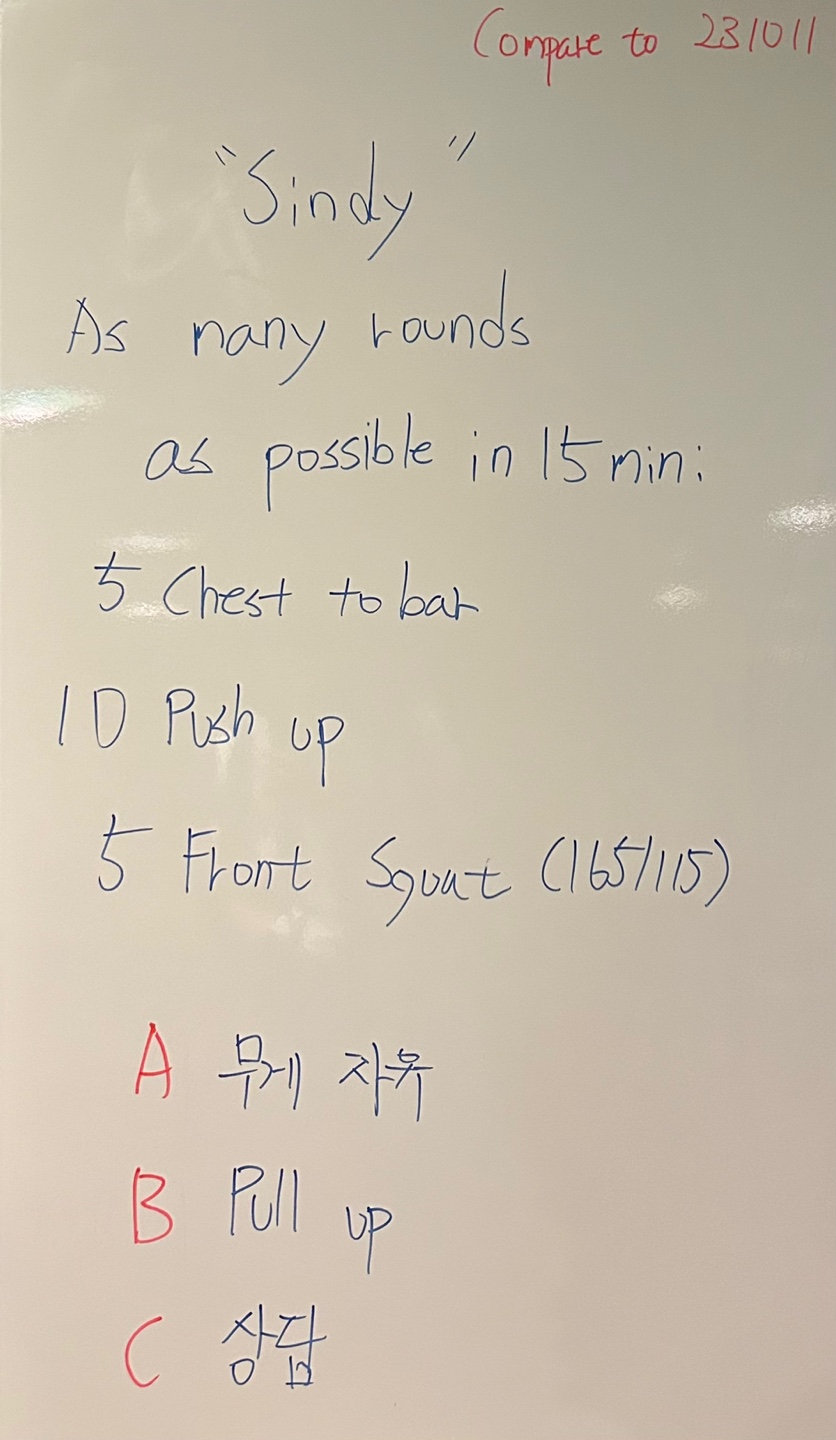 Compare to 231011
"Sindy"
As many rounds
as possible in 15 min:
5 Chest to bar
10 Push up
5 Front Squat (165/115)
A 무게 자유
B Pull up
C 상담